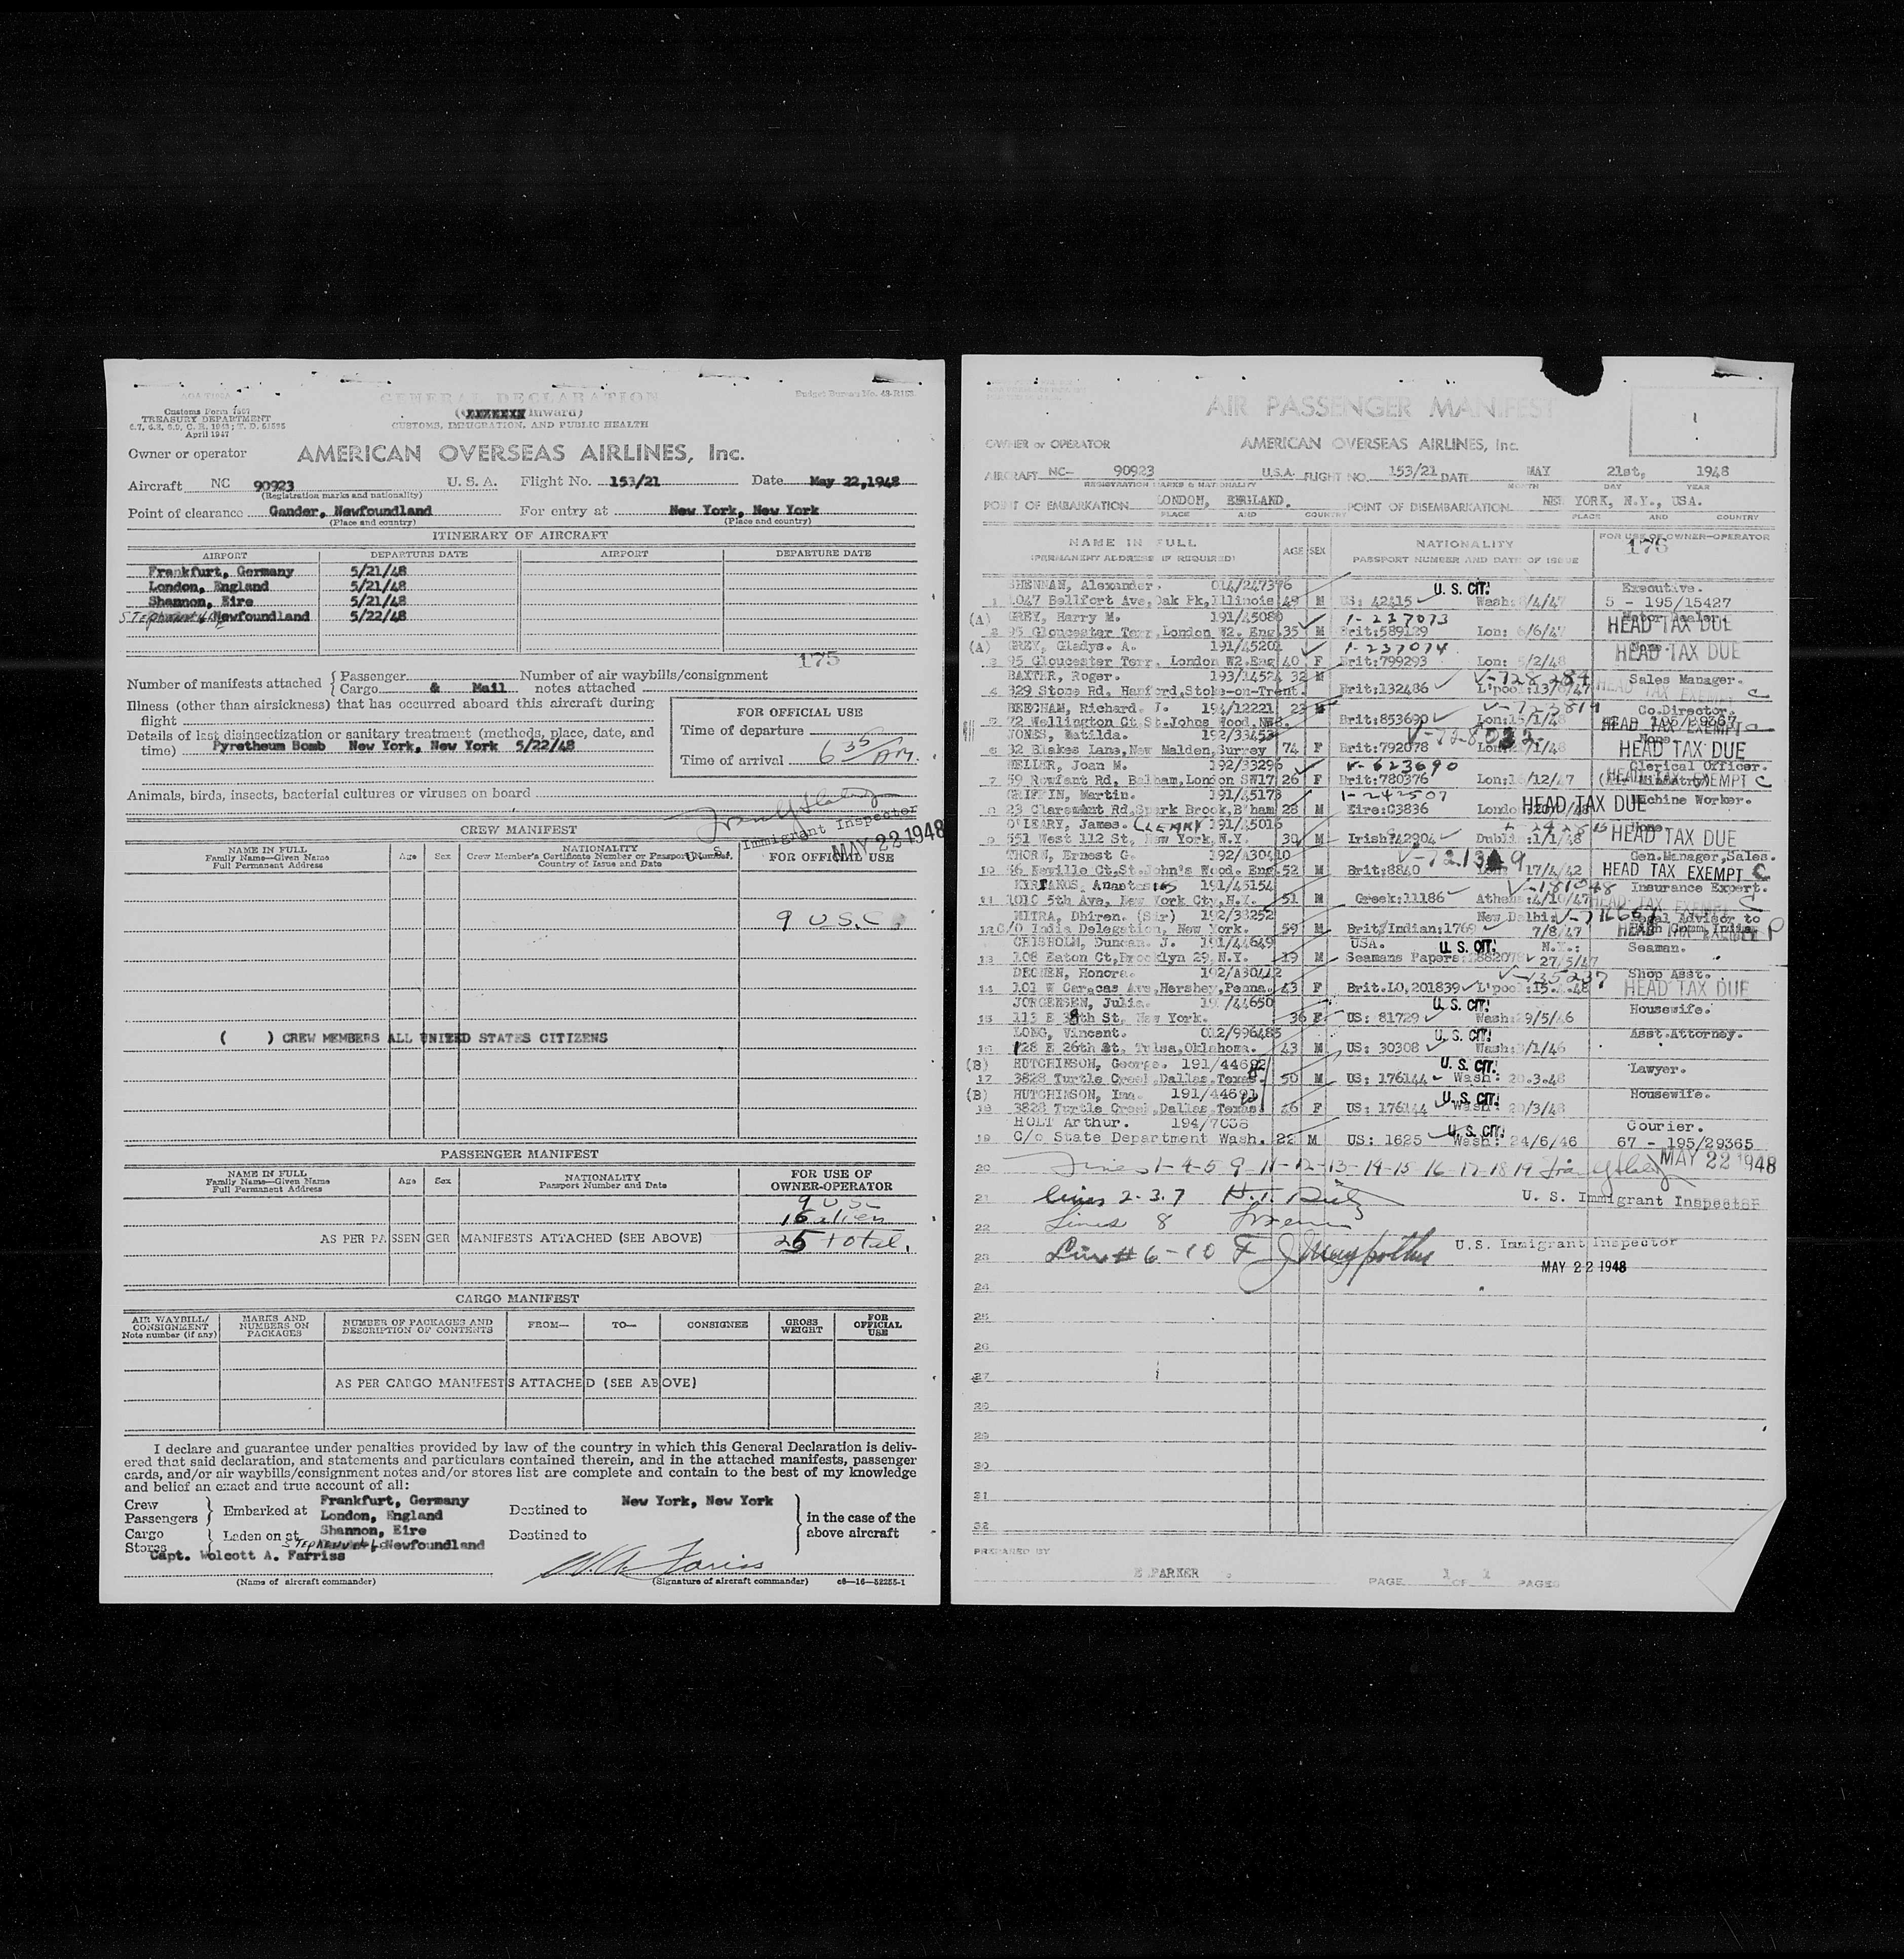 Customs Form 7507
TREASURY DEPARTMENT
April 1947
GENERAL DECLARATION
(Inward)
CUSTOMS, IMMIGRATION, AND PUBLIC HEALTH
Budget Bureau No. 48-R153
Owner or operator AMERICAN OVERSEAS AIRLINES, Inc.
Aircraft NC 90923 U. S. A. Flight No. 153/21 Date May 22,1948
(Registration marks and nationality)
Point of clearance Gander, Newfoundland For entry at New York, New York
(Place and country) (Place and country)
ITINERARY OF AIRCRAFT
AIRPORT DEPARTURE DATE AIRPORT DEPARTURE DATE
Frankfurt, Germany 5/21/48
London, England 5/21/48
Shannon, Eire 5/21/48
STEPHENVILLE Newfoundland 5/22/48
175
Number of manifests attached { Passenger Number of air waybills/consignment
Cargo & Mail notes attached
Illness (other than airsickness) that has occurred aboard this aircraft during
flight
Details of last disinsectization or sanitary treatment (methods, place, date, and
time) Pyretheum Bomb New York, New York 5/22/48
FOR OFFICIAL USE
Time of departure
Time of arrival 6 35 AM.
Animals, birds, insects, bacterial cultures or viruses on board
U. S. Immigrant Inspector
MAY 22 1948
CREW MANIFEST
NAME IN FULL
Family Name—Given Name
Full Permanent Address
Age Sex
NATIONALITY
Crew Member's Certificate Number or Passport Number,
Country of Issue and Date
FOR OFFICIAL USE
9 U.S.C
( ) CREW MEMBERS ALL UNITED STATES CITIZENS
PASSENGER MANIFEST
NAME IN FULL
Family Name—Given Name
Full Permanent Address
Age Sex
NATIONALITY
Passport Number and Date
FOR USE OF
OWNER-OPERATOR
9 USC
16 alien
25 total.
AS PER PASSENGER MANIFESTS ATTACHED (SEE ABOVE)
CARGO MANIFEST
AIR WAYBILL/
CONSIGNMENT
Note number (if any)
MARKS AND
NUMBERS ON
PACKAGES
NUMBER OF PACKAGES AND
DESCRIPTION OF CONTENTS
FROM— TO— CONSIGNEE
GROSS
WEIGHT
FOR
OFFICIAL
USE
AS PER CARGO MANIFESTS ATTACHED (SEE ABOVE)
I declare and guarantee under penalties provided by law of the country in which this General Declaration is deliv-
ered that said declaration, and statements and particulars contained therein, and in the attached manifests, passenger
cards, and/or air waybills/consignment notes and/or stores list are complete and contain to the best of my knowledge
and belief an exact and true account of all:
Crew
Passengers } Embarked at Frankfurt, Germany Destined to New York, New York
London, England
Cargo
Stores } Laden on at Shannon, Eire Destined to
STEPHENVILLE, Newfoundland
in the case of the
above aircraft
Capt. Wolcott A. Farriss
W.A. Farriss
(Name of aircraft commander) (Signature of aircraft commander) c8—16—52255-1
AIR PASSENGER MANIFEST
1
OWNER or OPERATOR AMERICAN OVERSEAS AIRLINES, Inc.
AIRCRAFT NC- 90923 U.S.A. FLIGHT NO. 153/21 DATE MAY 21st, 1948
REGISTRATION MARKS & NATIONALITY MONTH DAY YEAR
POINT OF EMBARKATION LONDON, ENGLAND. POINT OF DISEMBARKATION NEW YORK, N.Y., USA.
PLACE AND COUNTRY PLACE AND COUNTRY
NAME IN FULL
(PERMANENT ADDRESS IF REQUIRED)
AGE SEX
NATIONALITY
PASSPORT NUMBER AND DATE OF ISSUE
FOR USE OF OWNER-OPERATOR
175
SHENNAN, Alexander. 014/247376 U. S. CIT. Executive.
1 1047 Bellfort Ave, Oak Pk, Illinois 49 M US: 42415 Wash: /4/47 5 - 195/15427
(A) GREY, Harry M. 191/45080 1-237073 Motor Dealer.
2 95 Gloucester Terr, London W2. Eng 35 M Brit:589129 Lon: 6/6/47 HEAD TAX DUE
(A) GREY, Gladys. A. 191/45201 1-237074 None.
3 95 Gloucester Terr, London W2.Eng 40 F Brit:799293 Lon: 5/2/48 HEAD TAX DUE
BAXTER, Roger. 193/14524 32 M V-728284 Sales Manager.
4 329 Stone Rd, Hanford,Stoke-on-Trent. Brit:132486 L'pool:13/ /47 HEAD TAX EXEMPT C
BEECHAM, Richard. J. 194/12221 23 M V-723819 Co.Director.
5 72 Wellington Ct St.Johns Wood, NW8. Brit:853690 Lon:15/1/48 195/29367 HEAD TAX EXEMPT C
JONES, Matilda. 192/33453 V-728032 None.
6 32 Blakes Lane,New Malden,Surrey 74 F Brit:792078 Lon: /1/48 HEAD TAX DUE
WELLER, Joan M. 192/33296 V-623690 Clerical Officer.
7 59 Rowfant Rd, Balham,London SW17 26 F Brit:780376 Lon:1 /12/47 HEAD TAX EXEMPT C
GRIFFIN, Martin. 191/45173 1-242507 Machine Worker.
8 23 Claremont Rd,Spark Brook,B'ham 28 M Eire:C3836 HEAD TAX DUE
O'LEARY, James. CLEARY 191/45016 None
9 551 West 112 St, New York,N.Y. 30 M Irish:42904 Dublin:1/1/48 HEAD TAX DUE
THORN, Ernest G. 192/A30410 V-721349 Gen.Manager,Sales.
10 86 Neville Ct,St.John's Wood. Eng. 52 M Brit:8840 Lon: 17/4/42 HEAD TAX EXEMPT C
KYRIAKOS, Anastasios 191/45154 V-181048 Insurance Expert.
11 1010 5th Ave, New York Cty,N.Y. 51 M Greek:11186 Athens:4/10/47 HEAD TAX EXEMPT C
MITRA, Dhiren. (Sir) 192/33252 New Delhi: Legal Advisor to
12 C/O India Delegation, New York. 59 M Brit/Indian:1769 7/8/47 High Comm.India. HEAD TAX EXEMPT P
CHISHOLM, Duncan. J. 191/44649 USA. U. S. CIT. N.Y.: Seaman.
13 108 Eaton Ct,Brooklyn 29,N.Y. 19 M Seamans Papers: 27/5/47
DECHEN, Honora. 192/A30412 V-135237 Shop Asst.
14 101 W Caracas Ave,Hershey,Penna. 43 F Brit.LO,201839 L'pool:15. .48 HEAD TAX DUE
JORGENSEN, Julia. 19 /44650 U. S. CIT. Housewife.
15 113 E 38th St, New York. 36 F US: 81729 Wash:29/5/46
LONG, Vincent. 012/996485 U. S. CIT. Asst.Attorney.
16 128 E 26th St, Tulsa,Oklahoma. 43 M US: 30308 Wash: /1/46
(B) HUTCHINSON, George. 191/44692 U. S. CIT. Lawyer.
17 3828 Turtle Creek,Dallas,Texas. 50 M US: 176144 Wash: 20.3.48
(B) HUTCHINSON, Ima. 191/44691 U. S. CIT. Housewife.
18 3828 Turtle Creek,Dallas,Texas. 46 F US: 176144 Wash: 20/3/48
HOLT Arthur. 194/7038 U. S. CIT. Courier.
19 C/o State Department Wash. 22 M US: 1625 Wash: 24/6/46 67 - 195/29365
20 Lines 1-4-5 9-11-12-13-14-15 16-17-18 19 MAY 22 1948
21 Lines 2.3.7 U. S. Immigrant Inspector
22 Lines 8
23 Line # 6-10 U.S. Immigrant Inspector
MAY 22 1948
24
25
26
27
28
29
30
31
32
PREPARED BY
E.PARKER PAGE 1 OF 1 PAGES